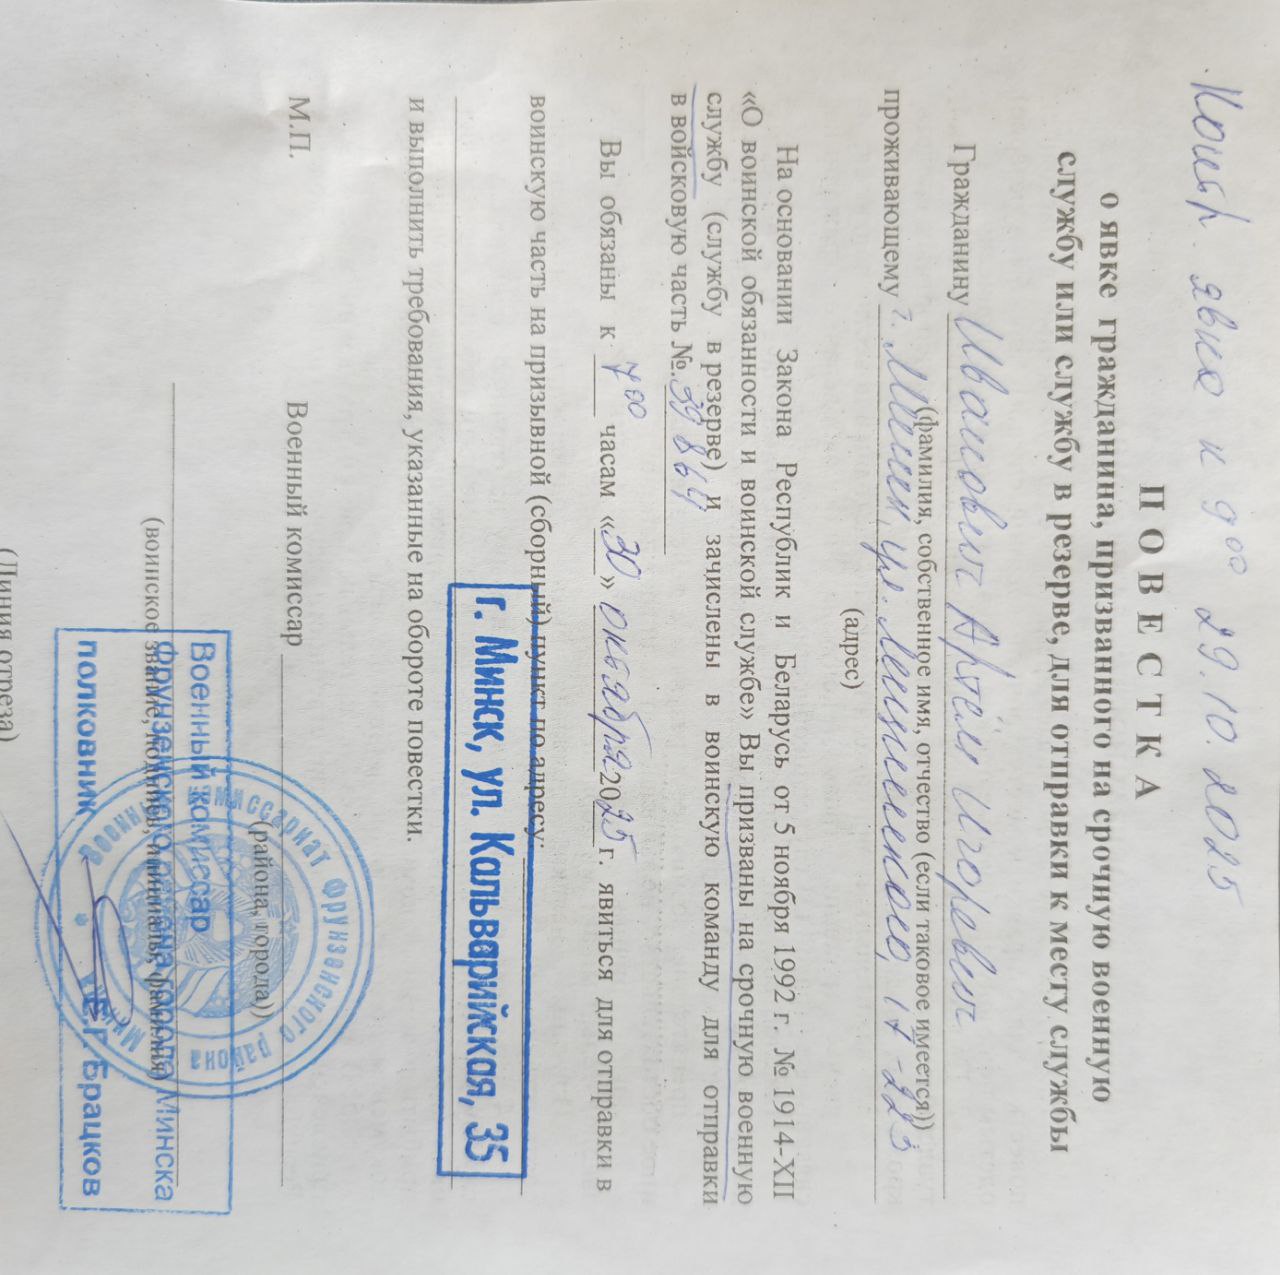 Контр. явка к 9⁰⁰ 29.10.2025
ПОВЕСТКА
о явке гражданина, призванного на срочную военную
службу или службу в резерве, для отправки к месту службы
Гражданину Иванович Артём Игоревич
(фамилия, собственное имя, отчество (если таковое имеется))
проживающему г. Минск, ул. 17-223
(адрес)
На основании Закона Республик и Беларусь от 5 ноября 1992 г. № 1914-XII
«О воинской обязанности и воинской службе» Вы призваны на срочную военную
службу (службу в резерве) и зачислены в воинскую команду для отправки
в войсковую часть №. 39864
Вы обязаны к 7⁰⁰ часам «30» октября 2025 г. явиться для отправки в
воинскую часть на призывной (сборный) пункт по адресу:
г. Минск, ул. Кальварийская, 35
и выполнить требования, указанные на обороте повестки.
М.П. Военный комиссар
(района, города))
Военный комиссариат Фрунзенского района г. Минска
Военный комиссар
Фрунзенского района города Минска
(воинское звание, подпись, инициалы, фамилия)
полковник Е.Г. Брацков
(Линия отреза)